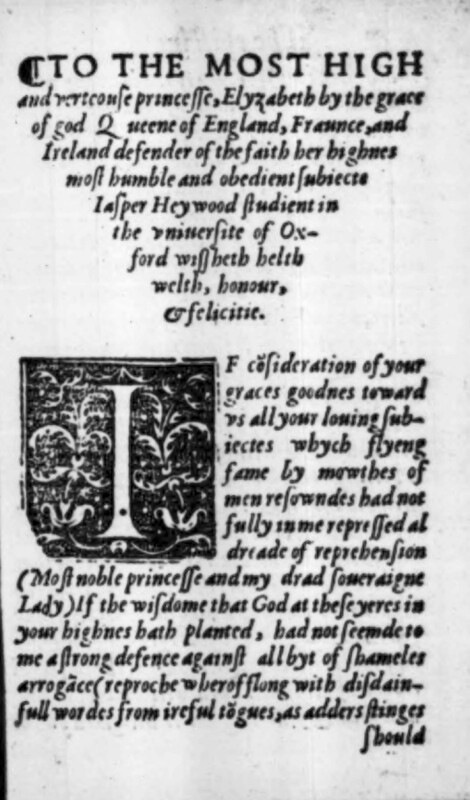 ¶TO THE MOST HIGH
and verteouse princesse, Elyzabeth by the grace
of god Queene of England, Fraunce, and
Ireland defender of the faith her highnes
most humble and obedient subiecte
Iasper Heywood student in
the vniuersite of Ox-
ford wissheth helth
welth, honour,
& felicitie.
IF cõsideration of your
graces goodnes toward
vs all your louing sub-
iectes whych flyeng
fame by mowthes of
men resowndes had not
fully in me repressed al
dreade of reprehension
(Most noble princesse and my drad soueraigne
Lady) If the wisdome that God at these yeres in
your highnes hath planted, had not seemde to
me a strong defence against all byt of shameles
arrogãce (reproche wherof flong with disdain-
full wordes from ireful tõgues, as adders stinges
should